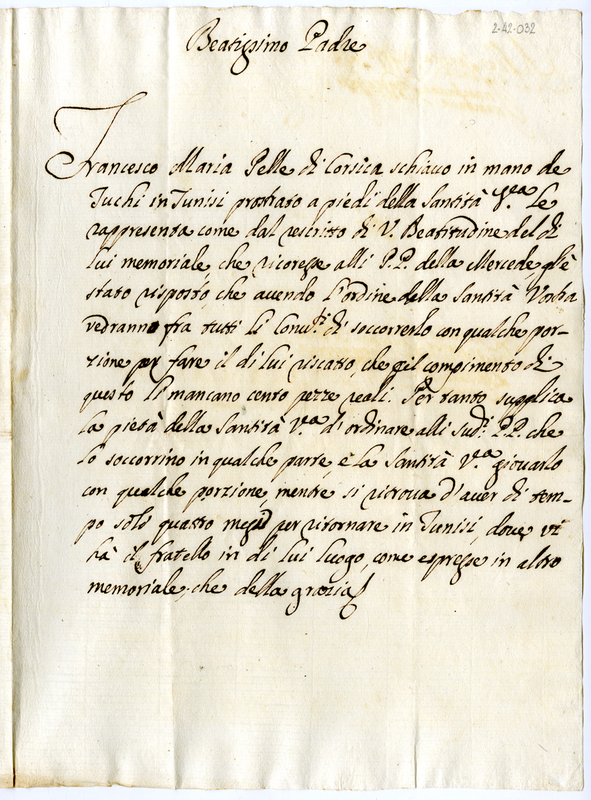 2-42-032
Beatissimo Padre
Francesco Maria Pelle di Corsica schiavo in mano de
Tuchi in Tunisi prostrato a piedi della Santità V.ra Le
rappresenta come dal rescritto di V. Beatitudine del di
lui memoriale, che ricoresse alli P.P. della Mercede gl'è
stato risposto, che avendo l'ordine della Santità Vostra
vedranno fra tutti li Conu.ti di soccorrerlo con qualche por-
zione per fare il di lui riscatto, che p il compimento di
questo li mancano cento pezze reali. Per tanto supplica
la pietà della Santità V.ra d'ordinare alli Sud.i P.P. che
lo soccorrino in qualche parte, e la Santità V.ra giovarlo
con qualche porzione, mentre si ritrova d'aver di tem-
po solo quattro mesi per ritornare in Tunisi, dove vi
hà il fratello in di lui luogo, come espresse in altro
memoriale, che della grazia